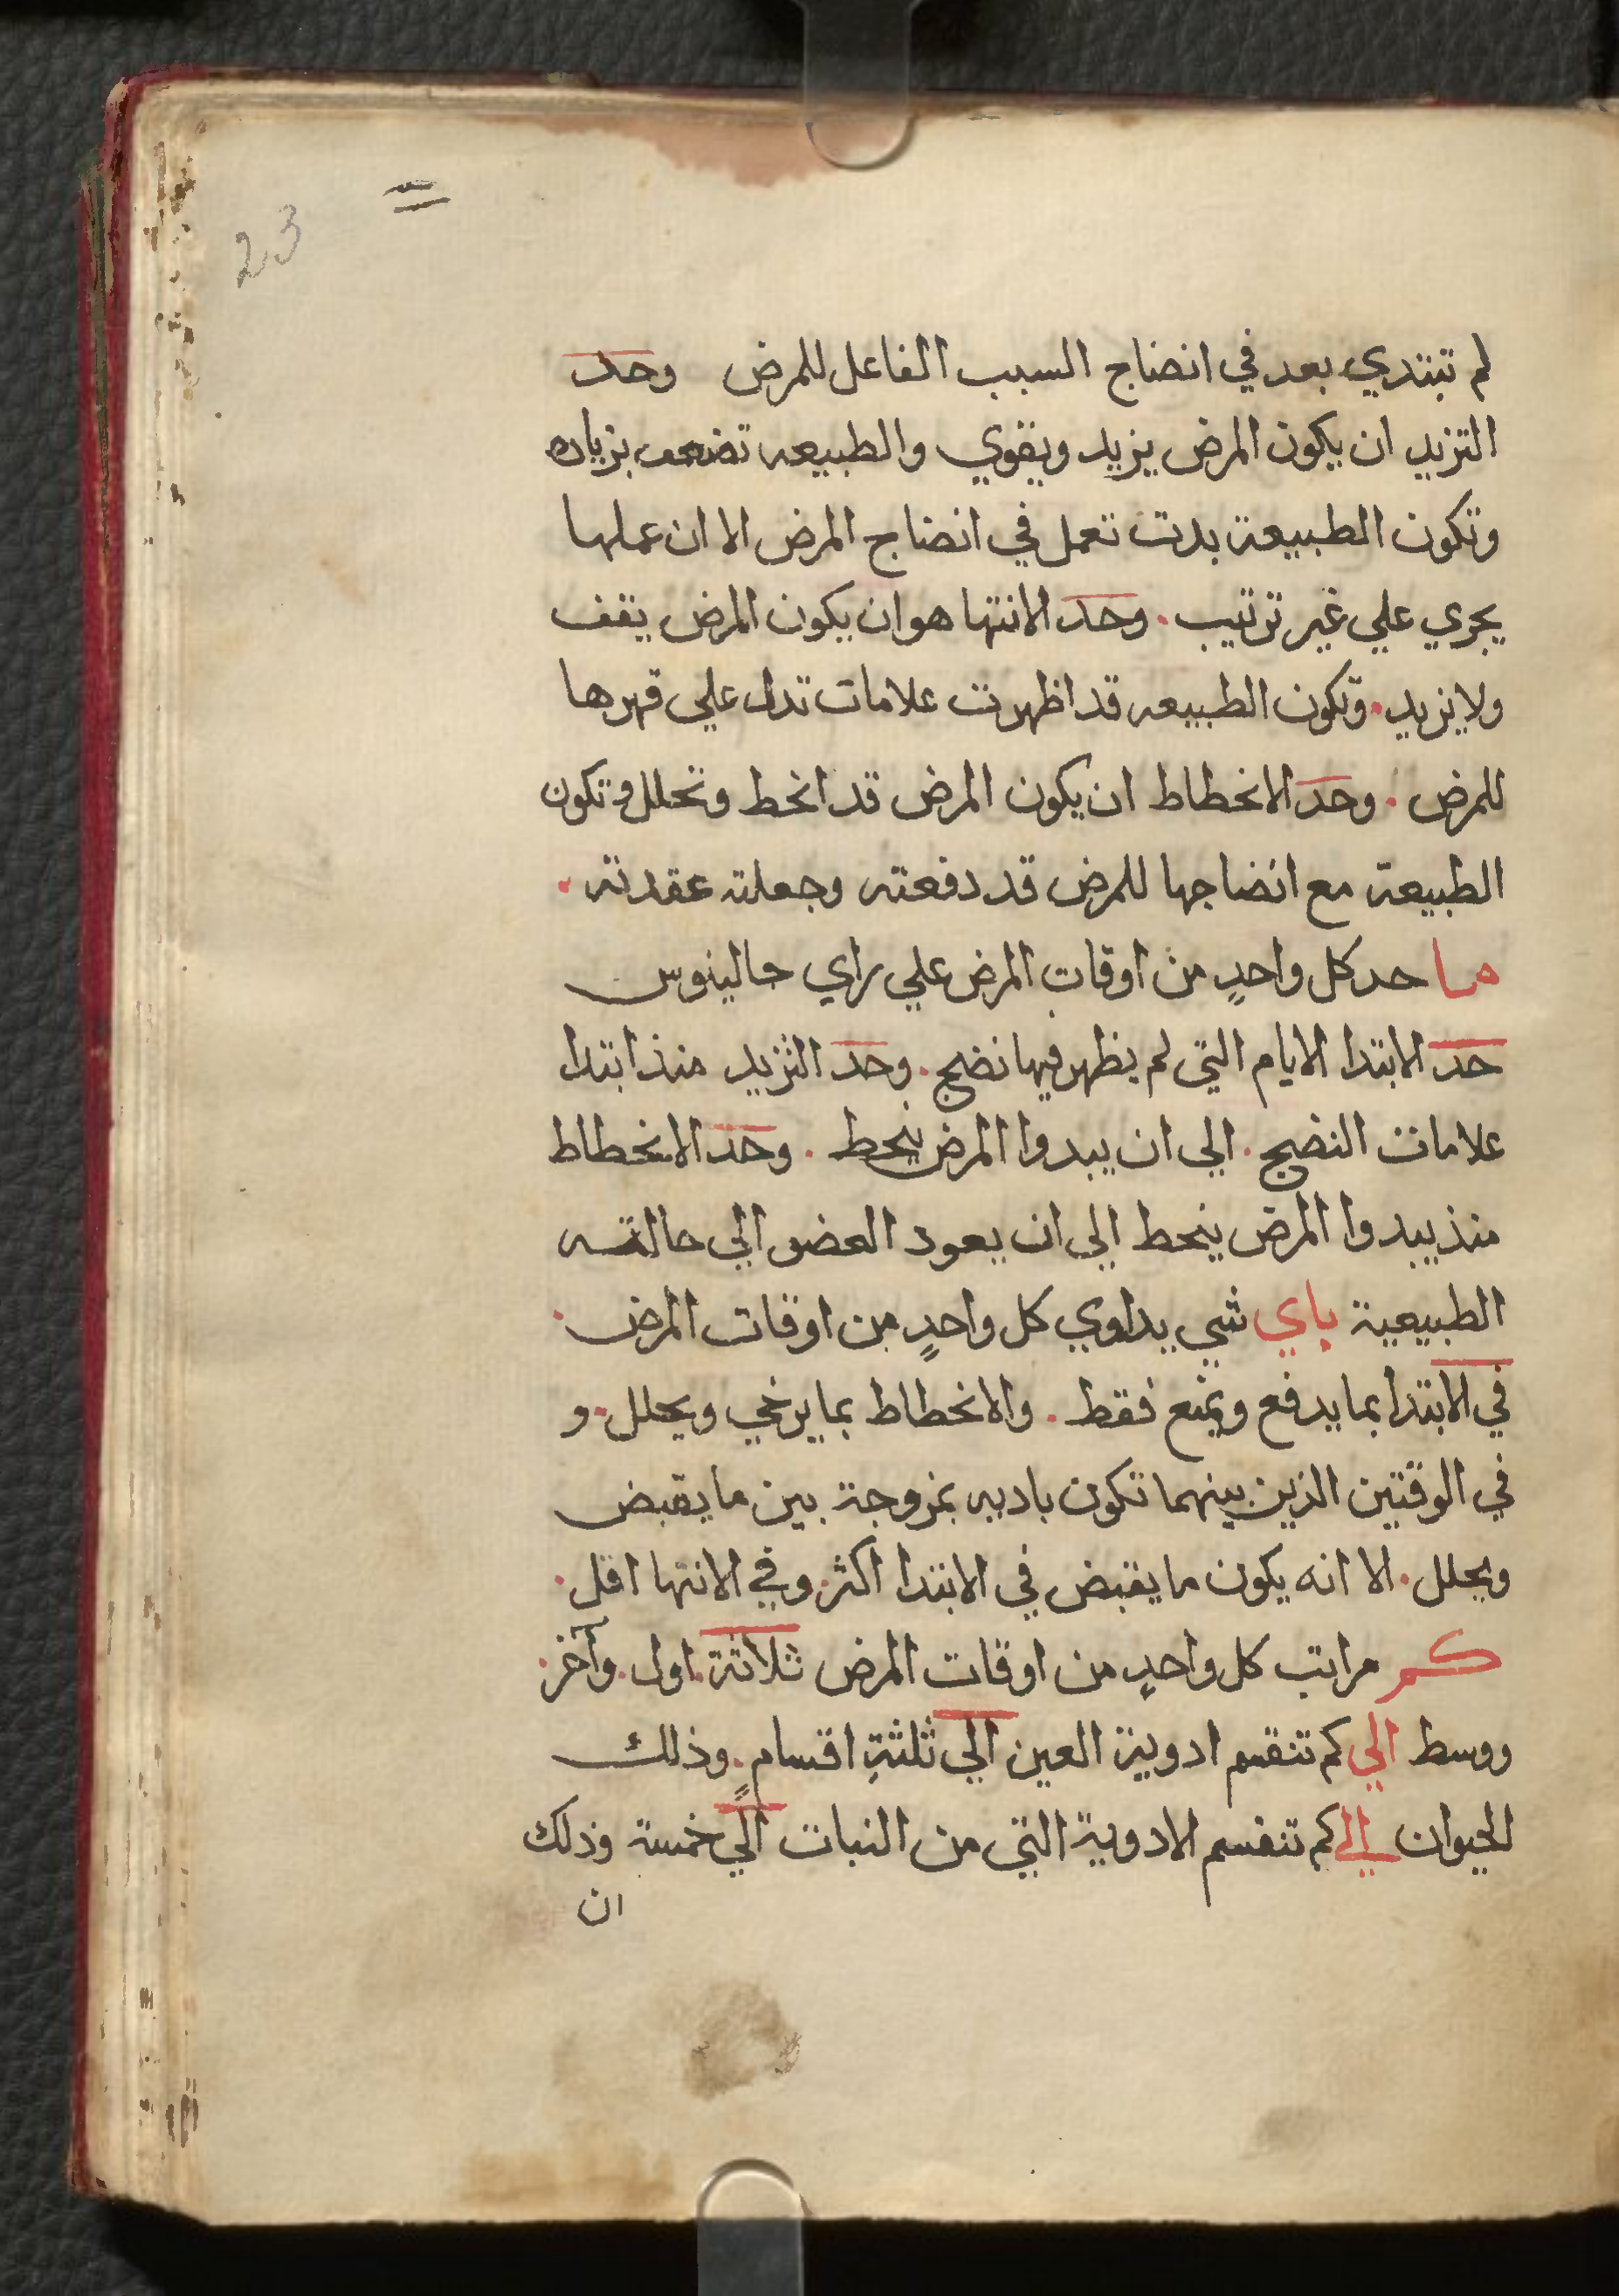 23
لم تبتدي بعد في انضاج السبب الفاعل للمرض وحد
التزيد ان يكون المرض يزيد ويقوي والطبيعه تضعف بزياده
وتكون الطبيعة بدت تعمل في انضاج المرض الا ان عملها
يجري علي غير ترتيب. وحد الانتها هو ان يكون المرض يقف
ولا يزيد. وتكون الطبيعه قد اظهرت علامات تدل علي قهرها
للمرض. وحد الانحطاط ان يكون المرض قد انحط وتحلل وتكون
الطبيعة مع انضاجها للمرض قد دفعته وجعلته عقدته.
ما حد كل واحدٍ من اوقات المرض علي راي جالينوس
حد الابتدا الايام التي لم يظهر فيها نضج. وحد التزيد منذ ابتدا
علامات النضج. الي ان يبدوا المرض ينحط. وحد الانحطاط
منذ يبدوا المرض ينحط الي ان يعود العضو الي حالته
الطبيعية باي شي يداوي كل واحدٍ من اوقات المرض.
في الابتدا بما يدفع ويمنع فقط. والانحطاط بما يرخي ويحلل. و
في الوقتين الذين بينهما تكون بادويه ممزوجة بين ما يقبض
ويحلل. الا انه يكون ما يقبض في الابتدا اكثر. وفي الانتها اقل.
كم مراتب كل واحدٍ من اوقات المرض ثلاثة. اول. وآخر.
ووسط الي كم تنقسم ادوية العين الي ثلثةِ اقسامٍ. وذلك
الحيوان الي كم تنقسم الادوية التي من النبات الي خمسة وذلك
ان